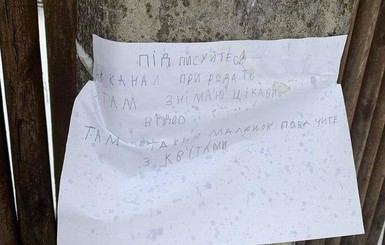 ПІДПИСУЙТЕСЬ
КАНАЛ ПРИРОДА ТВ
ТАМ ЗНІМАЮ ЦІКАВІ
ВІДЕО
ТАМ МАЛЮНОК ПОБАЧИТЕ
З КВІТАМИ